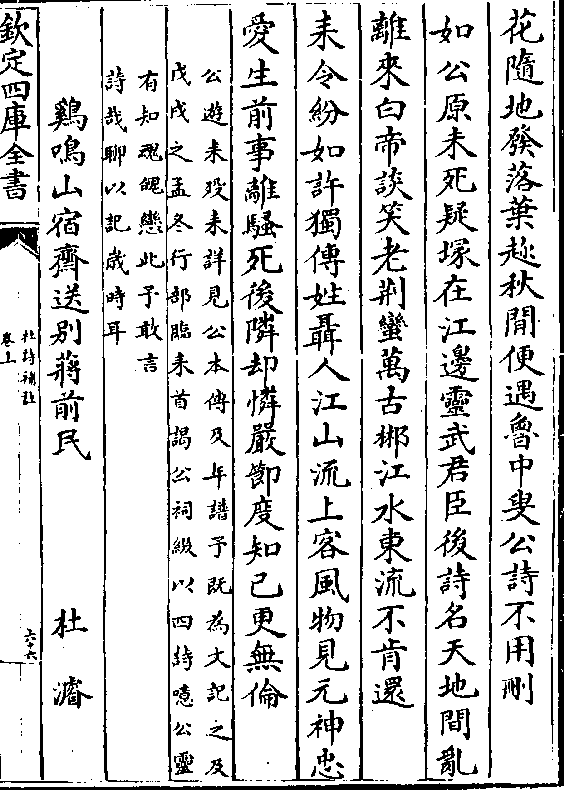 花隨地發落葉趂秋閒便遇魯中叟公詩不用刪
如公原未死疑塚在江邊靈武君臣後詩名天地間亂
離來白帝談笑老荆蠻萬古郴江水東流不肯還
耒令紛如許獨傳姓聶人江山流上客風物見元神忠
愛生前事離騷死後隣却憐嚴節度知已更無倫
公遊耒歿耒詳見公本傳及年譜予既為文記之及
戊戌之孟冬行部臨耒首謁公祠綴以四詩噫公靈
有知魂魄戀此予敢言
詩哉聊以記歲時耳
鷄鳴山宿齋送别蔣前民
杜濬
欽定四庫全書
杜詩補註
卷上
六十六